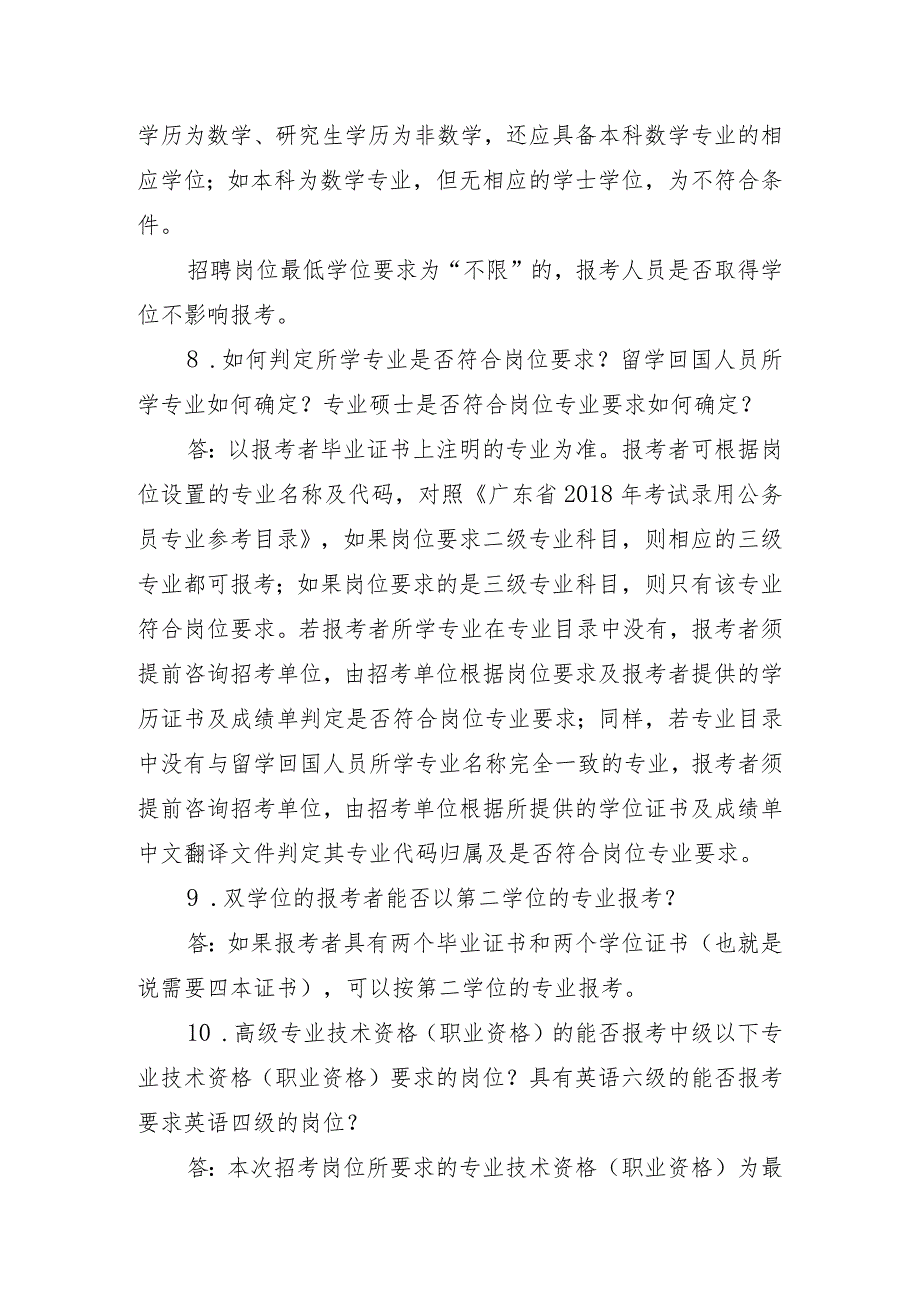 学历为数学、研究生学历为非数学，还应具备本科数学专业的相
应学位；如本科为数学专业，但无相应的学士学位，为不符合条
件。
招聘岗位最低学位要求为“不限”的，报考人员是否取得学
位不影响报考。
8 .如何判定所学专业是否符合岗位要求？留学回国人员所
学专业如何确定？专业硕士是否符合岗位专业要求如何确定？
答：以报考者毕业证书上注明的专业为准。报考者可根据岗
位设置的专业名称及代码，对照《广东省 2018 年考试录用公务
员专业参考目录》，如果岗位要求二级专业科目，则相应的三级
专业都可报考；如果岗位要求的是三级专业科目，则只有该专业
符合岗位要求。若报考者所学专业在专业目录中没有，报考者须
提前咨询招考单位，由招考单位根据岗位要求及报考者提供的学
历证书及成绩单判定是否符合岗位专业要求；同样，若专业目录
中没有与留学回国人员所学专业名称完全一致的专业，报考者须
提前咨询招考单位，由招考单位根据所提供的学位证书及成绩单
中文翻译文件判定其专业代码归属及是否符合岗位专业要求。
9 .双学位的报考者能否以第二学位的专业报考？
答：如果报考者具有两个毕业证书和两个学位证书（也就是
说需要四本证书），可以按第二学位的专业报考。
10 .高级专业技术资格（职业资格）的能否报考中级以下专
业技术资格（职业资格）要求的岗位？具有英语六级的能否报考
要求英语四级的岗位？
答：本次招考岗位所要求的专业技术资格（职业资格）为最